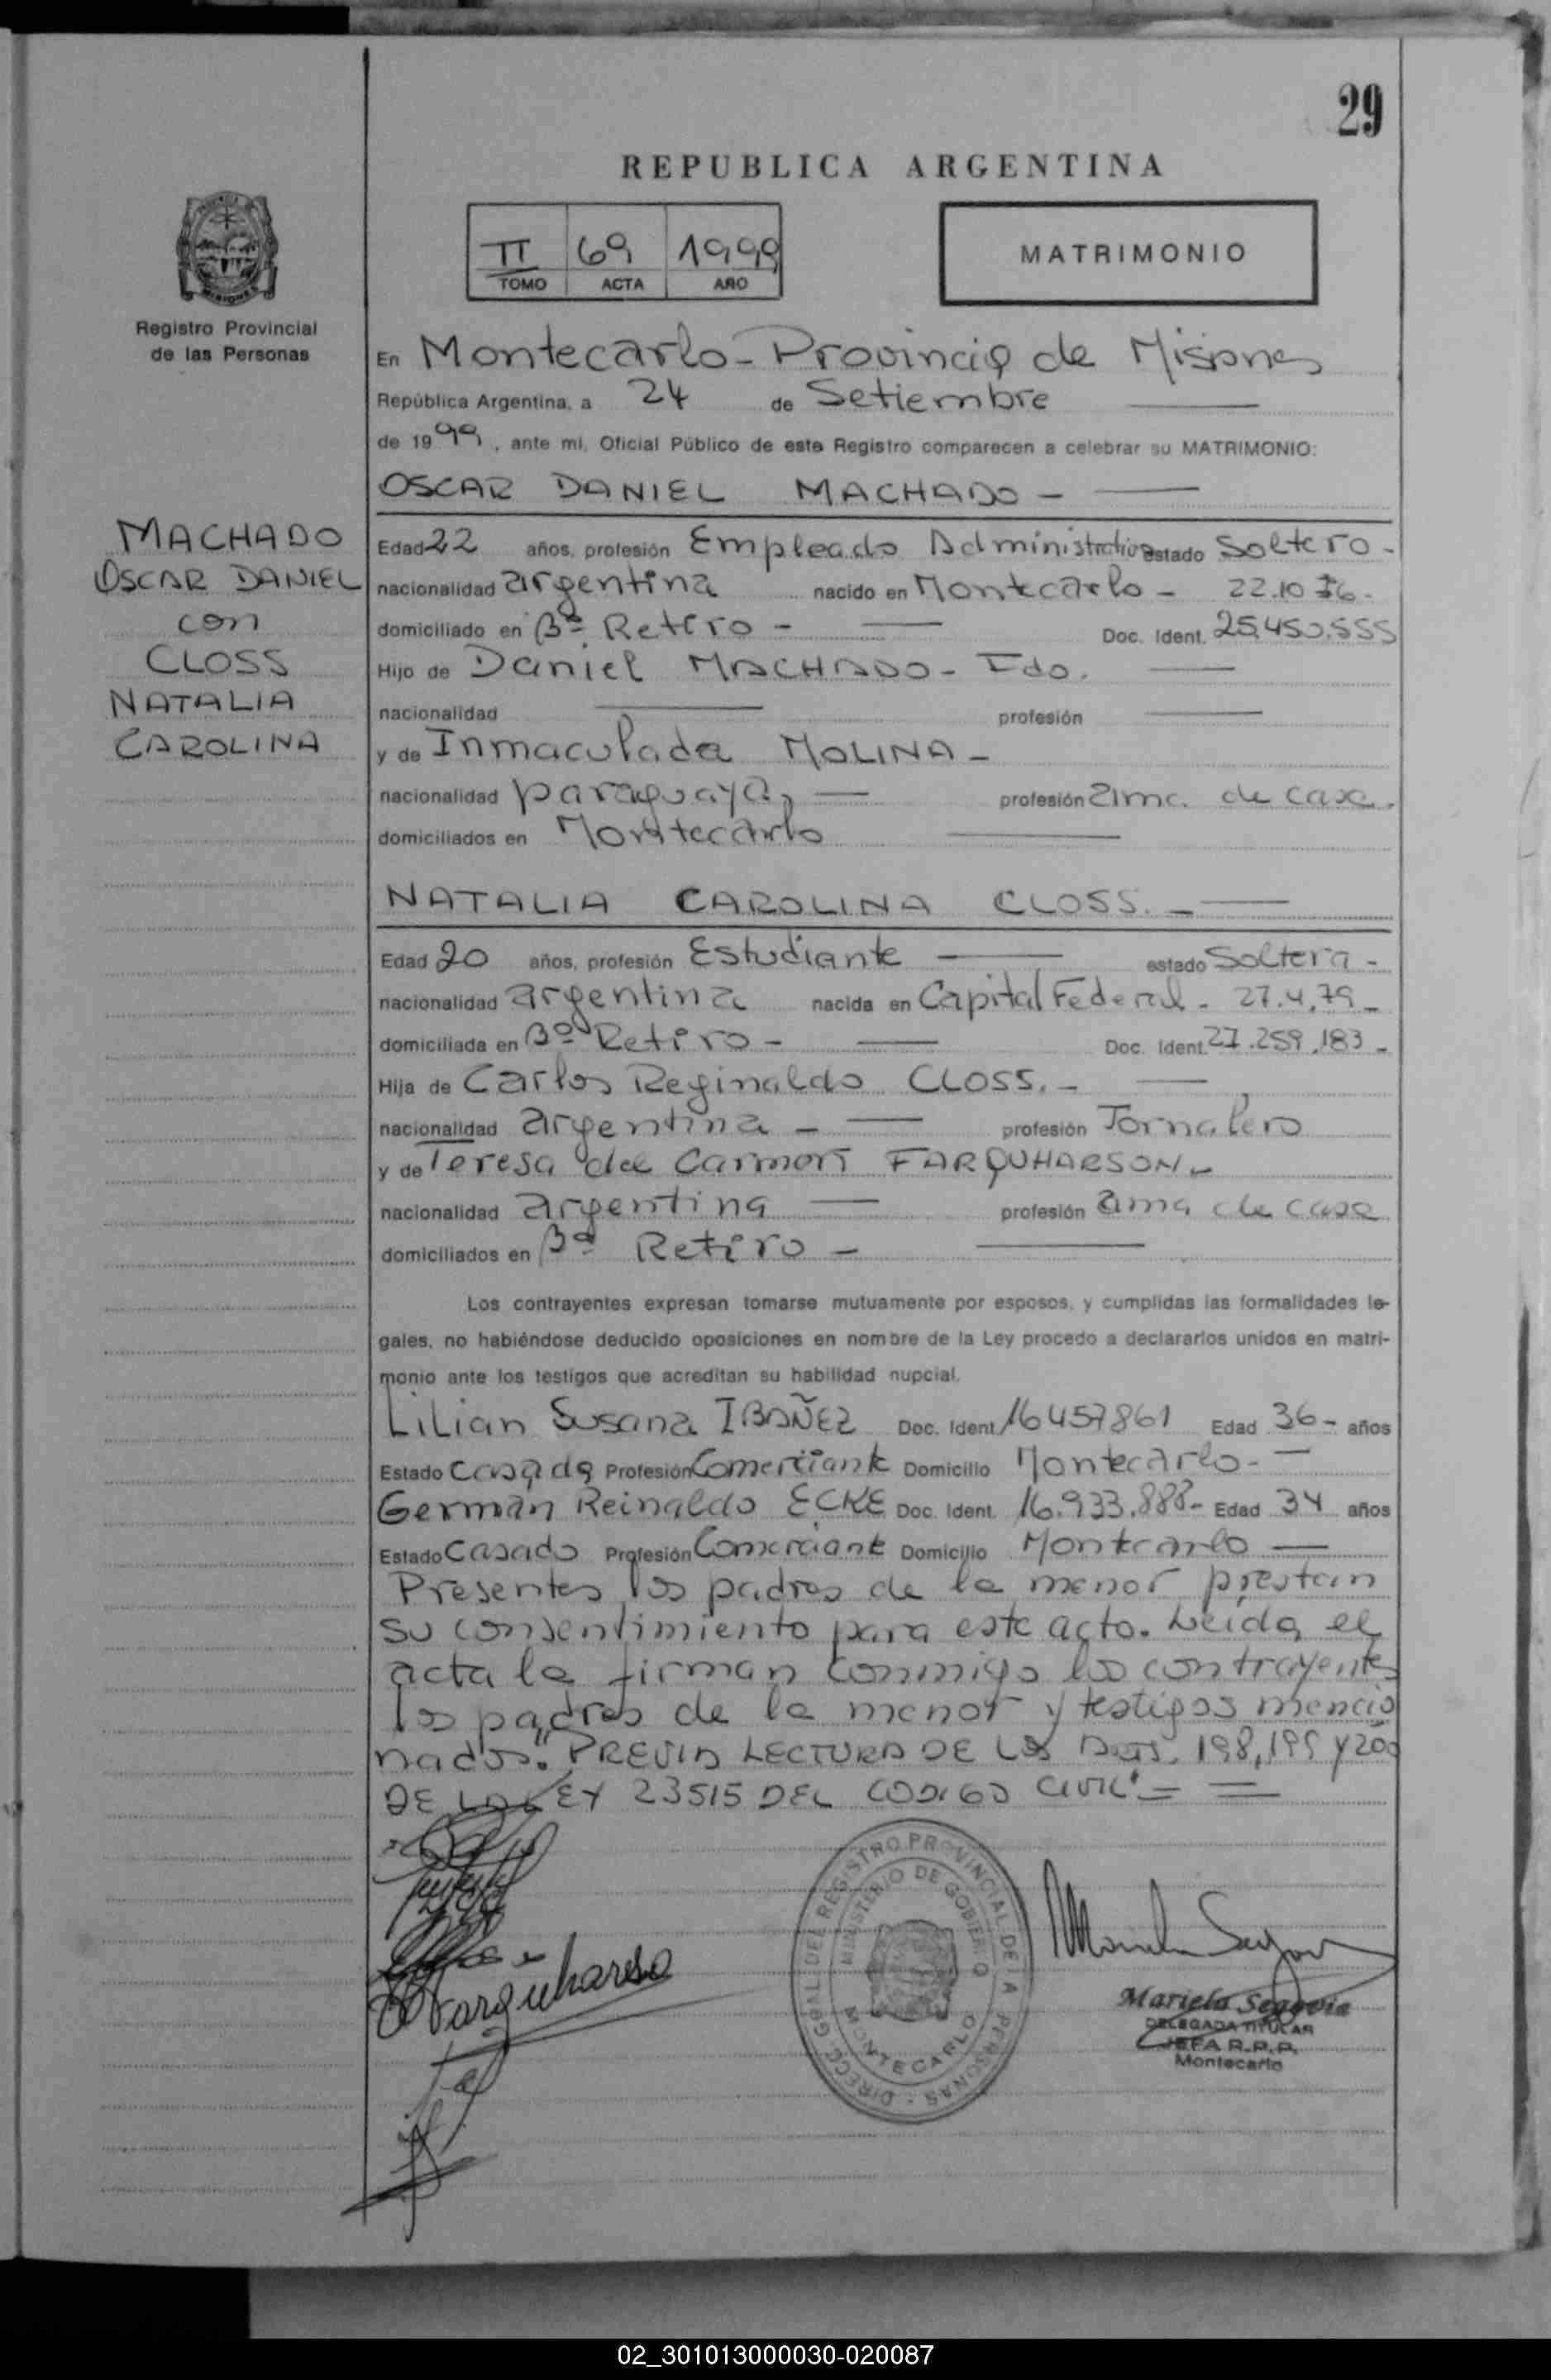 29
REPUBLICA ARGENTINA
II 69 1999
TOMO ACTA AÑO
MATRIMONIO
Registro Provincial
de las Personas
En Montecarlo - Provincia de Misiones
República Argentina, a 24 de Setiembre
de 1999, ante mi, Oficial Público de este Registro comparecen a celebrar su MATRIMONIO:
OSCAR DANIEL MACHADO -
MACHADO
OSCAR DANIEL
con
CLOSS
NATALIA
CAROLINA
Edad 22 años, profesión Empleado Administrativo estado Soltero -
nacionalidad argentina nacido en Montecarlo - 22.10.76 -
domiciliado en Bº Retiro - Doc. Ident. 25.450.555
Hijo de Daniel MACHADO - Fdo.
nacionalidad profesión
y de Inmaculada MOLINA -
nacionalidad paraguaya, profesión ama de casa.
domiciliados en Montecarlo
NATALIA CAROLINA CLOSS. -
Edad 20 años, profesión Estudiante estado Soltera -
nacionalidad argentina nacida en Capital Federal - 27.4.79 -
domiciliada en Bº Retiro - Doc. Ident. 27.259.183 -
Hija de Carlos Reginaldo CLOSS. -
nacionalidad argentina - profesión Jornalero
y de Teresa del Carmen FARQUHARSON -
nacionalidad argentina profesión ama de casa
domiciliados en Bº Retiro -
Los contrayentes expresan tomarse mutuamente por esposos, y cumplidas las formalidades le-
gales, no habiéndose deducido oposiciones en nombre de la Ley procedo a declararlos unidos en matri-
monio ante los testigos que acreditan su habilidad nupcial.
Lilian Susana IBAÑEZ Doc. Ident. 16457861 Edad 36 - años
Estado Casada Profesión Comerciante Domicilio Montecarlo -
Germán Reinaldo ECKE Doc. Ident. 16.933.888 - Edad 34 años
Estado Casado Profesión Comerciante Domicilio Montecarlo
Presentes los padres de la menor prestan
su consentimiento para este acto. Leida el
acta la firman conmigo los contrayentes
los padres de la menor y testigos mencio
nados. "PREVIA LECTURA DE LOS Arts. 198, 199 y 200
DE LA LEY 23515 DEL CODIGO CIVIL" = =
Farquharso
DIRECC. GRAL. DEL REGISTRO PROVINCIAL DE LA PERSONAS
MINISTERIO DE GOBIERNO
MONTECARLO
Mariela Segovia
DELEGADA TITULAR
JEFA R.P.P.
Montecarlo
02_301013000030-020087